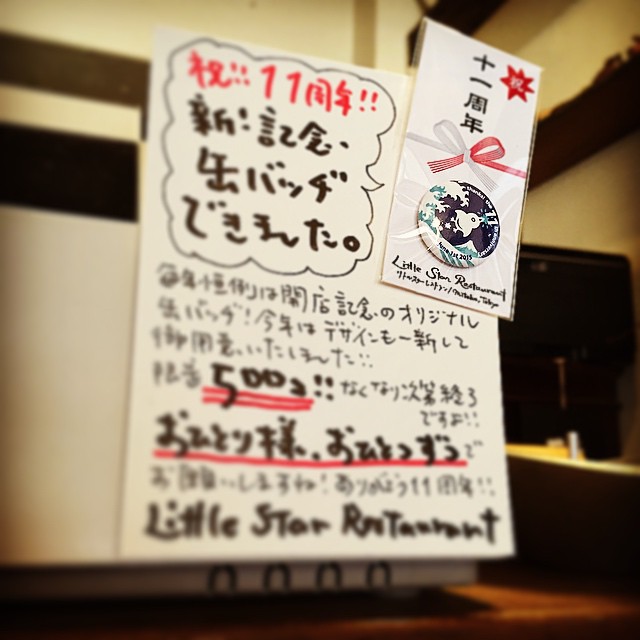 祝!!11周年!!
新!記念
缶バッヂ
できました。
毎年恒例は開店記念のオリジナル
缶バッヂ!今年はデザインも一新して
御用意いたしました!!
限定500コ!!なくなり次第終了
ですよ!!
おひとり様、おひとつずつで
お願いしますね!ありがとう11周年!!
Little Star Restaurant
祝
十一周年
June 1st 2015
Little Star Restaurant
リトルスターレストラン/Mitaka, Tokyo